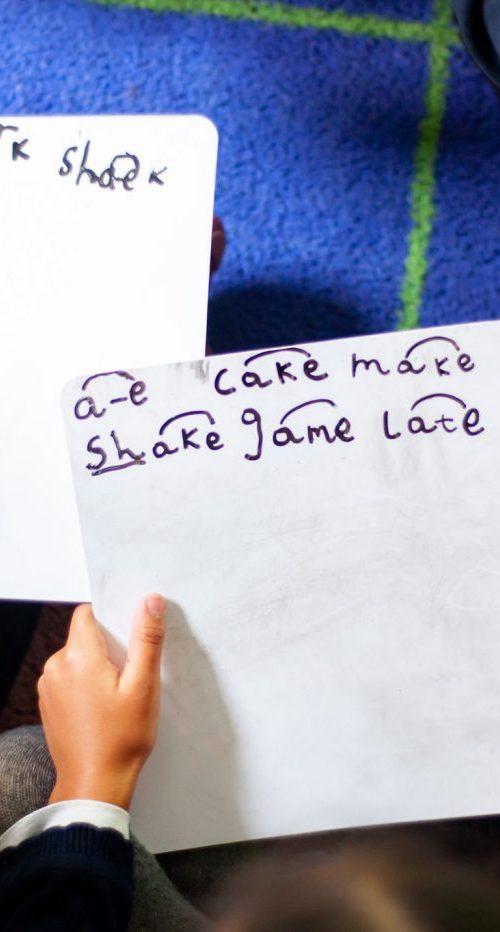 shaek
a-e cake make
shake game late